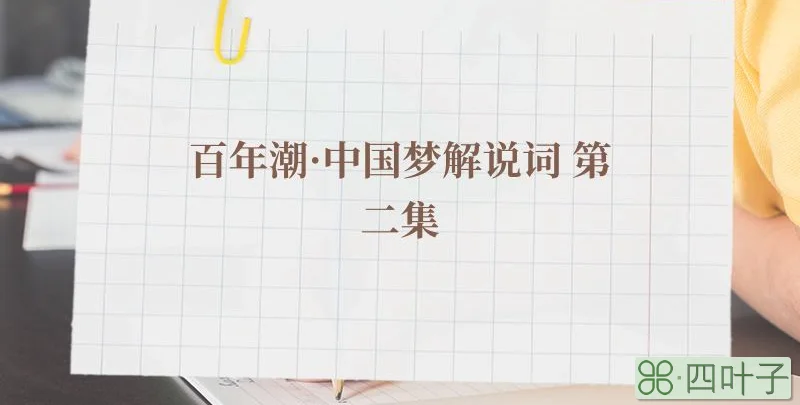 百年潮·中国梦解说词 第
二集
四叶子